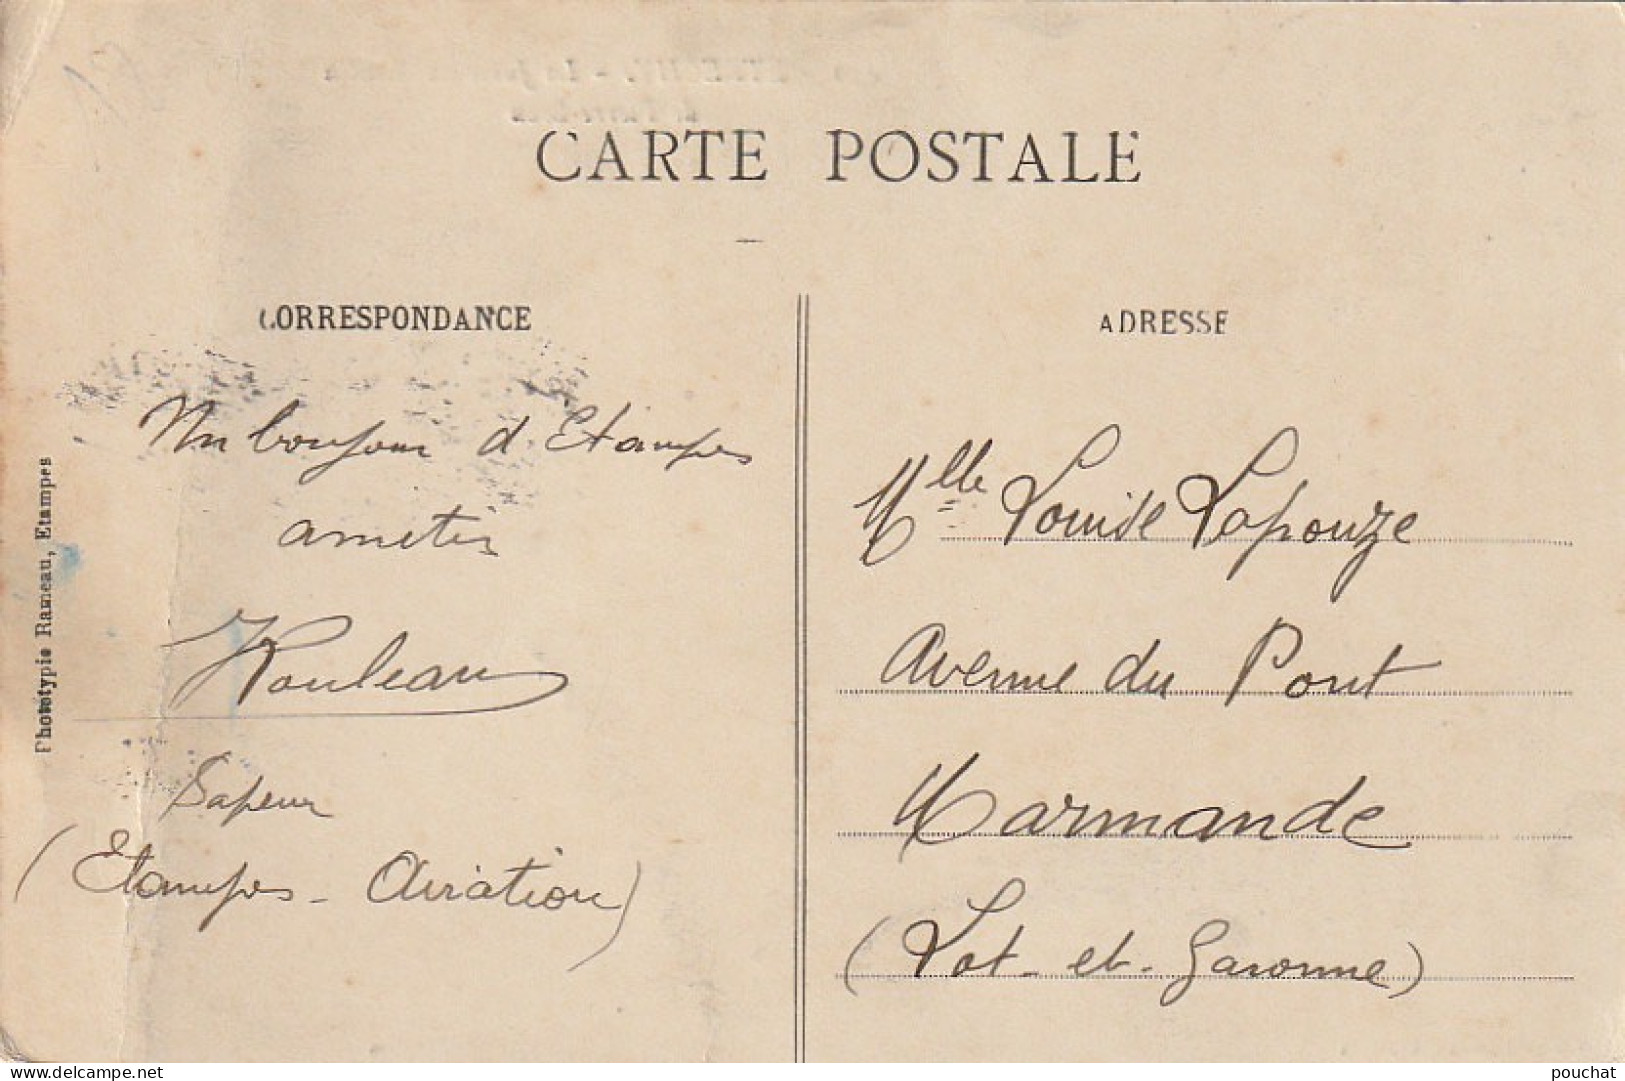 CARTE POSTALE
CORRESPONDANCE
ADRESSE
Phototypie Rameau, Etampes
Un bonjour d'Etampes
amitiés
Rouleau
Sapeur
(Etampes - Aviation)
Mlle Louise Lapouze
Avenue du Pont
Marmande
(Lot-et-Garonne)
delcampe.net
pouchat